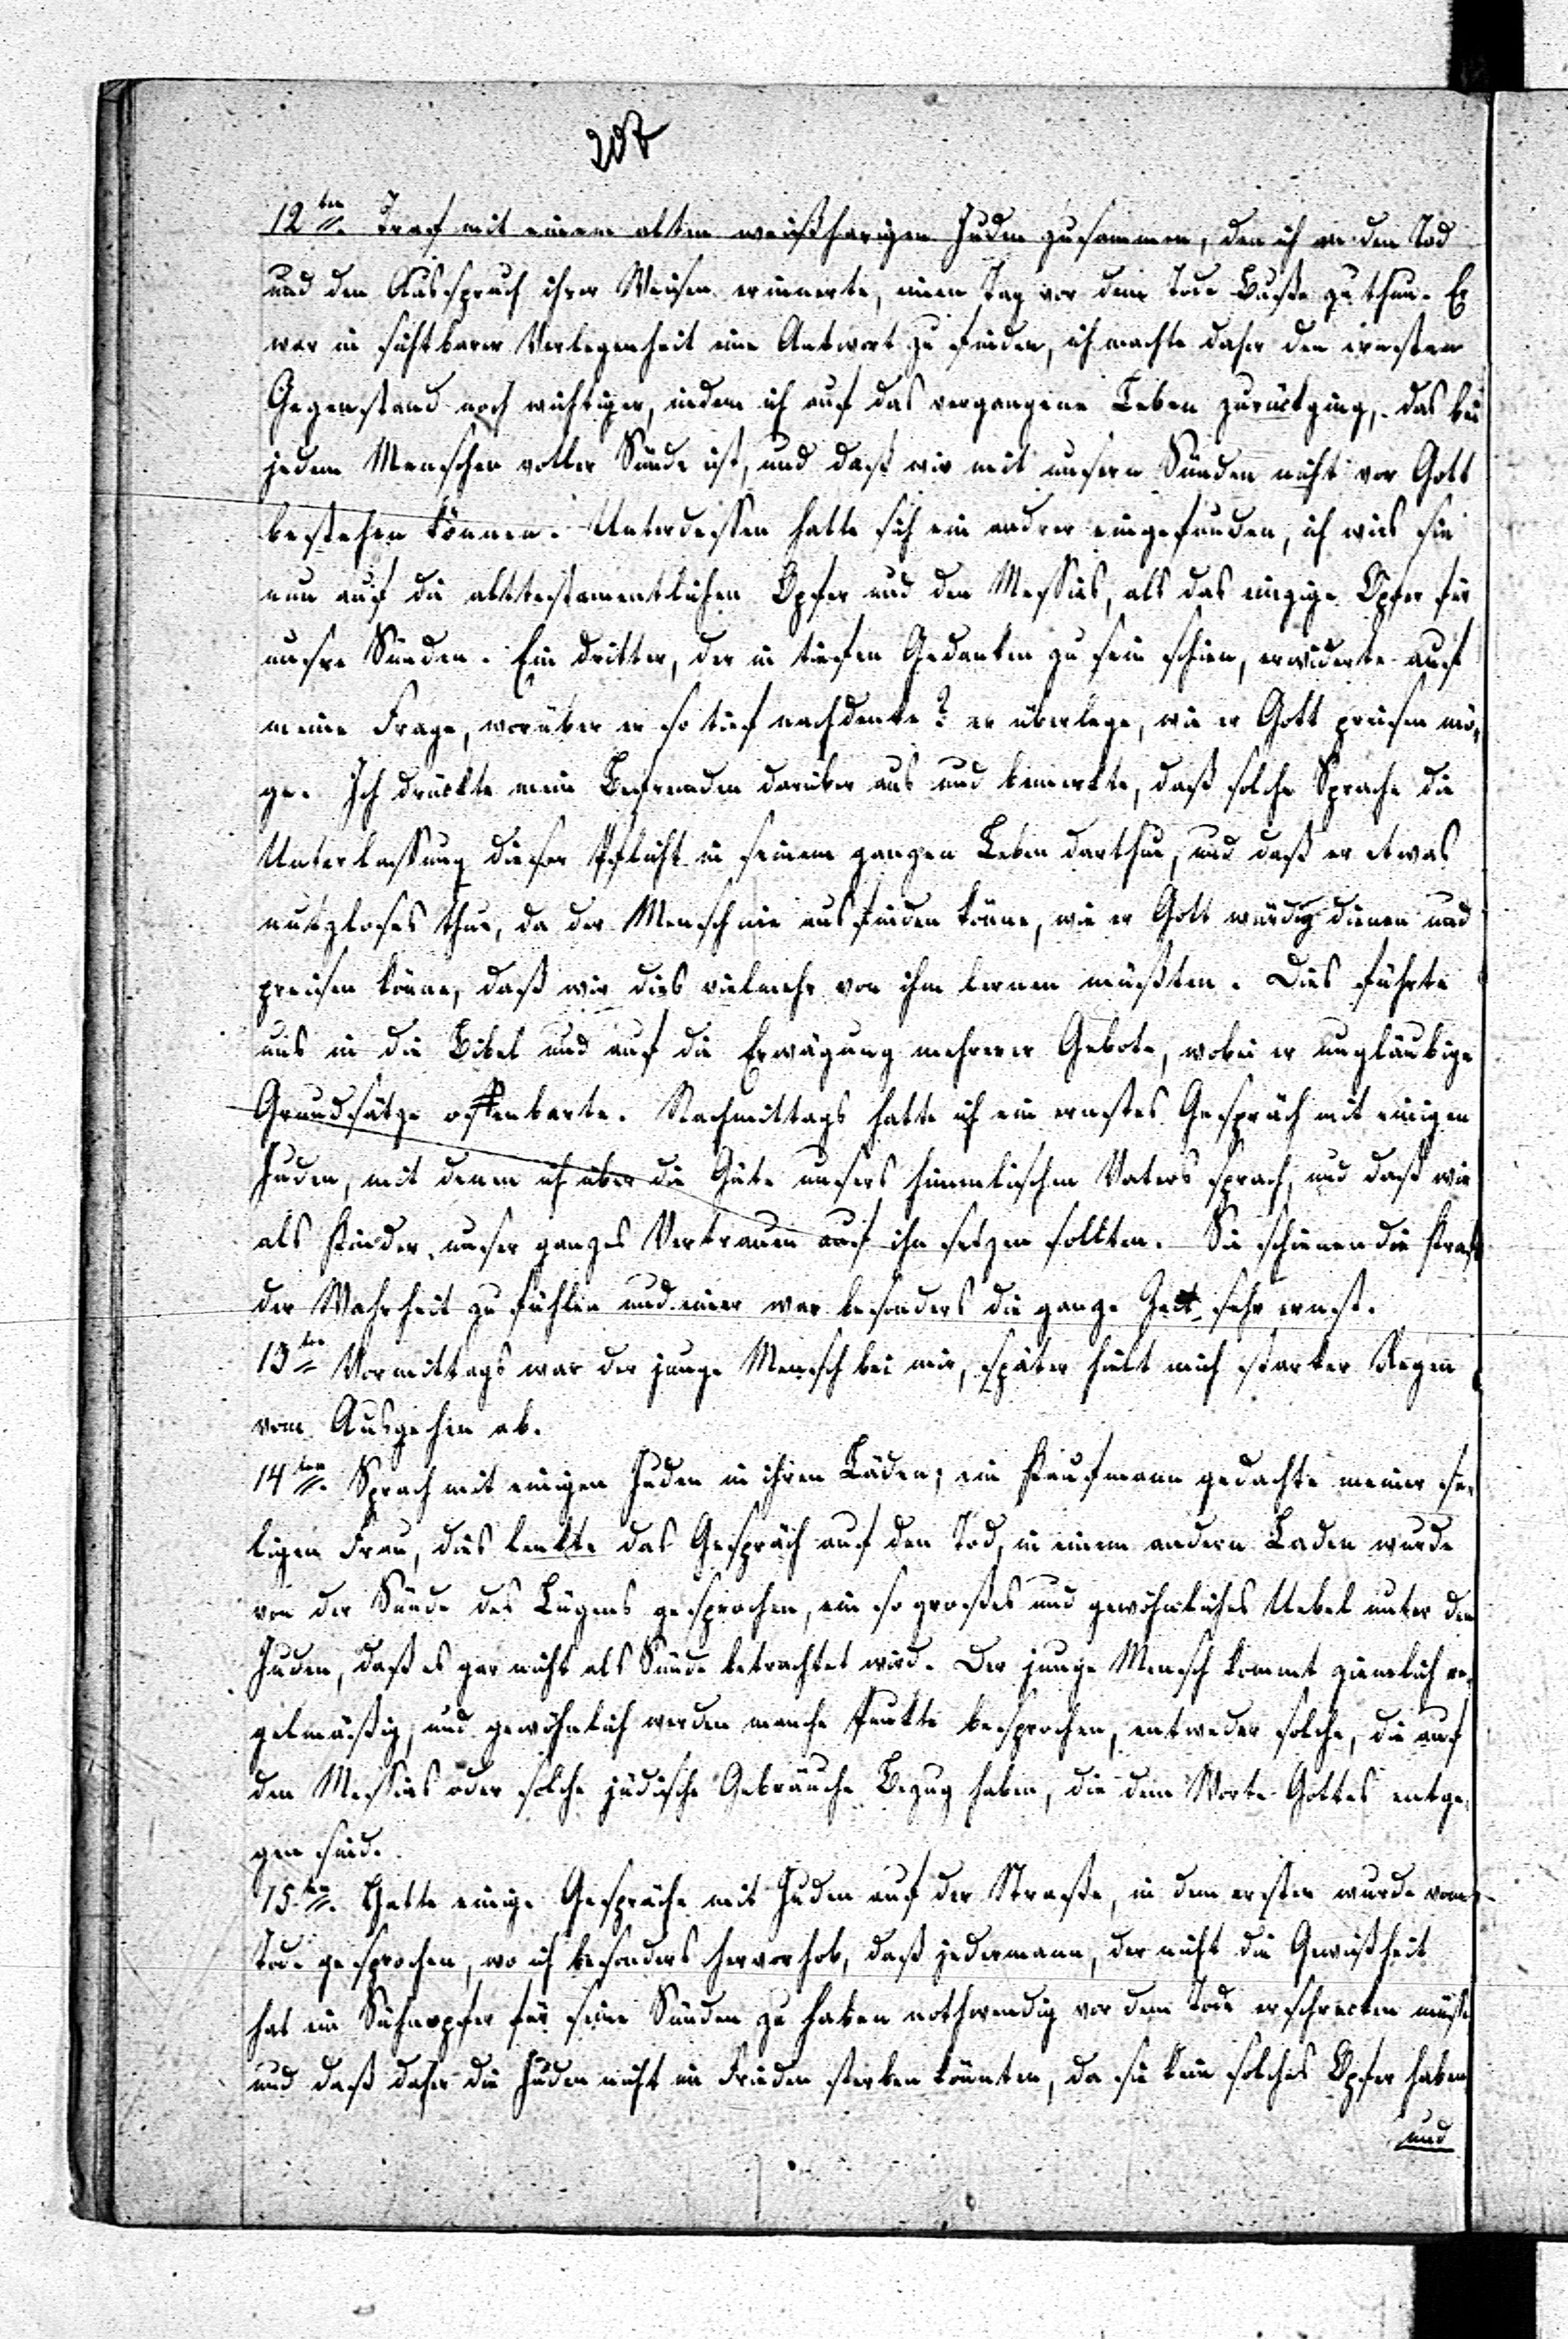 207
12ten. Traf mit einem alten weißharigen Juden zusammen, den ich an den Tod
und den Ausspruch ihrer Weisen erinnerte, einen Tag vor dem Tode Buße zu thun. Er
war in sichtbarer Verlegenheit eine Antwort zu finden, ich machte daher den ernsten
Gegenstand noch wichtiger, indem ich auf das vergangene Leben zurückging, das bei
jedem Menschen voller Sünde ist, und daß wir mit unsern Sünden nicht vor Gott
bestehen können. Unterdessen hatte sich ein andrer eingefunden, ich wies sie
nun auf die alttestamentlichen Opfer und den Messias, als das einzige Opfer für
unsre Sünden. Ein dritter, der in tiefen Gedanken zu sein schien, erwiderte auf
meine Frage, worüber er so tief nachdenke? er überlege, wie er Gott preisen mö-
ge. Ich drückte mein Befremden darüber aus und bemerkte, daß solche Sprache die
Unterlassung dieser Pflicht in seinem ganzen Leben darthue, und daß er etwas
nutzloses thue, da der Mensch nie ausfinden könne, wie er Gott würdig dienen und
preisen könne, daß wir dies vielmehr von ihm lernen müßten. Dies führte
uns in die Bibel und auf die Erwägung mehrerer Gebote, wobei er ungläubige
Grundsätze offenbarte. Nachmittags hatte ich ein ernstes Gespräch mit einigen
Juden, mit denen ich über die Güte unsers himmlischen Vaters sprach, und daß wir
als Kinder unser ganzes Vertrauen auf ihn setzen sollten. Sie schienen die Kraft
der Wahrheit zu fühlen und einer war besonders die ganze Zeit sehr ernst.
13ten Vormittags war der junge Mensch bei mir, später hielt mich starker Regen
vom Ausgehen ab.
14ten. Sprach mit einigen Juden in ihren Läden; ein Kaufmann gedachte meiner se-
ligen Frau, dies lenkte das Gespräch auf den Tod, in einem andern Laden wurde
von der Sünde des Lügens gesprochen, ein so großes und gewöhnliches Uebel unter den
Juden, daß es gar nicht als Sünde betrachtet wird. Der junge Mensch kommt ziemlich re-
gelmäßig, und gewöhnlich werden manche Punkte besprochen, entweder solche, die auf
den Messias oder solche jüdische Gebräuche Bezug haben, die dem Worte Gottes entge-
gen sind.
15ten. Hatte einige Gespräche mit Juden auf der Straße, in dem ersten wurde vom
Tode gesprochen, wo ich besonders hervorhob, daß jedermann, der nicht die Gewißheit
hat ein Sühnopfer für seine Sünden zu haben nothwendig vor dem Tode erschrecken müsse
und daß daher die Juden nicht in Frieden sterben könnten, da sie kein solches Opfer haben
und